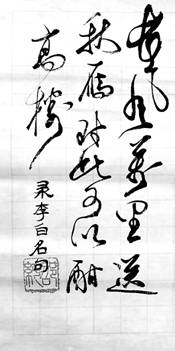 長风萬里送
秋雁对此可以酣
高楼
录李白名句